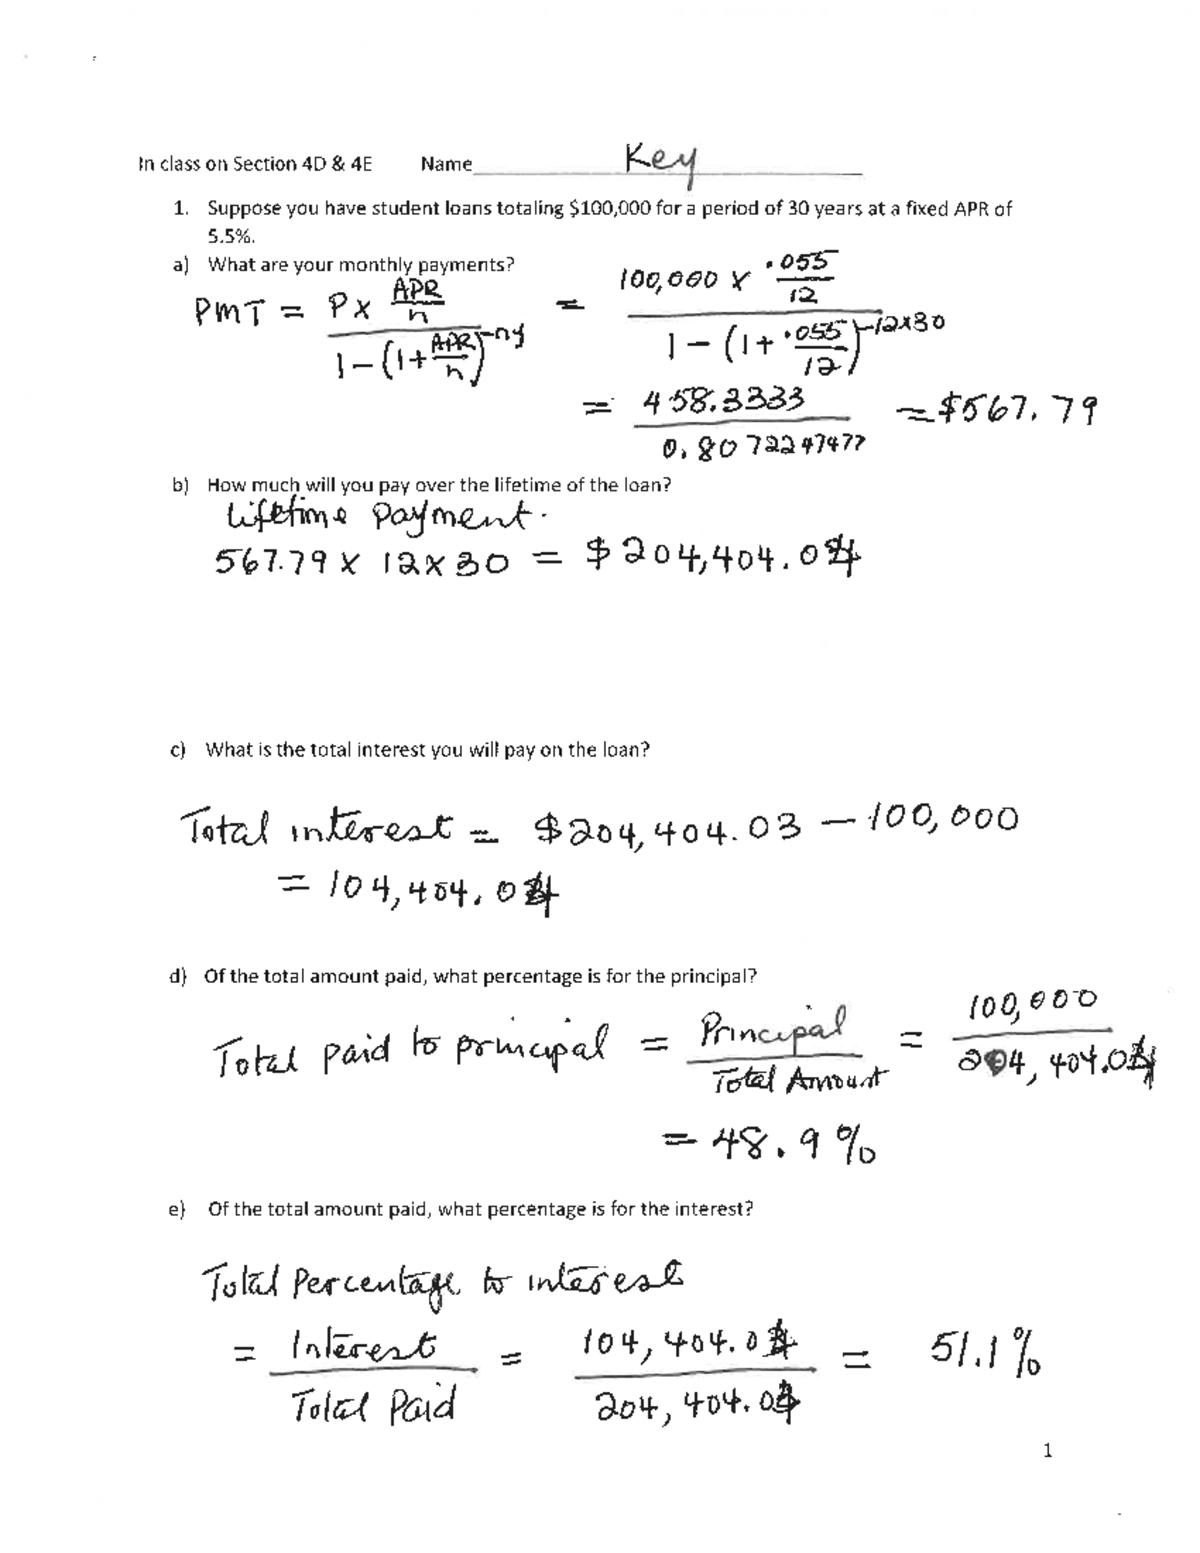 In class on Section 4D & 4E Name Key
1. Suppose you have student loans totaling $100,000 for a period of 30 years at a fixed APR of
5.5%.
a) What are your monthly payments?
PMT = P x APR/n / 1-(1+APR/n)^-ny = 100,000 x .055/12 / 1-(1+.055/12)^-12x30
= 458.3333 / 0.8072247477 = $567.79
b) How much will you pay over the lifetime of the loan?
Lifetime Payment.
567.79 x 12 x 30 = $204,404.04
c) What is the total interest you will pay on the loan?
Total interest = $204,404.03 - 100,000
= 104,404.04
d) Of the total amount paid, what percentage is for the principal?
Total paid to principal = Principal / Total Amount = 100,000 / 204,404.04
= 48.9%
e) Of the total amount paid, what percentage is for the interest?
Total Percentage to interest
= Interest / Total Paid = 104,404.04 / 204,404.04 = 51.1%
1